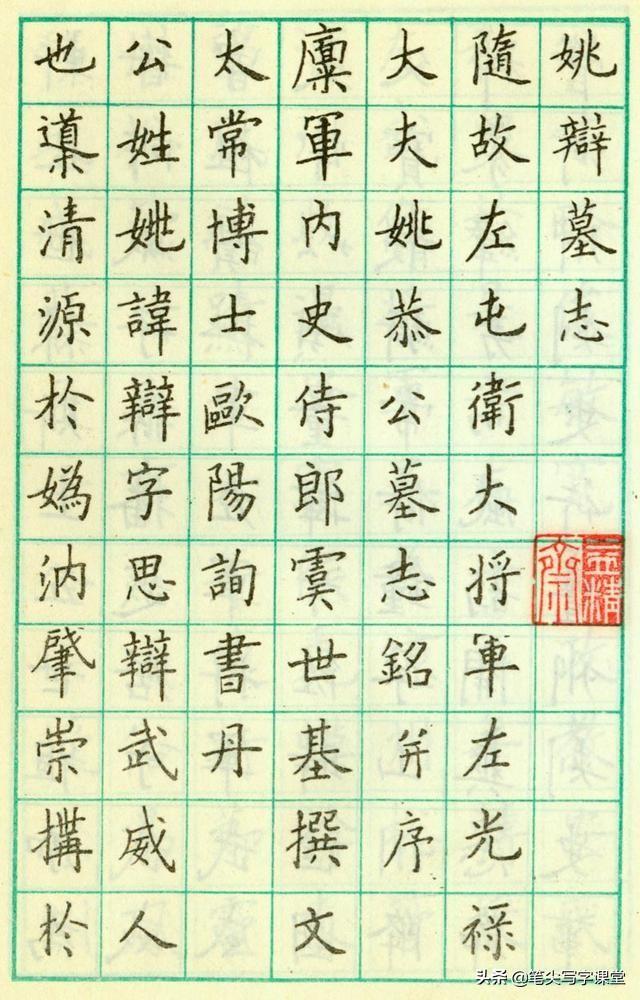 姚辯墓志
隨故左屯衛大将軍左光祿
大夫姚恭公墓志銘并序
廩軍内史侍郎虞世基撰文
太常博士歐陽詢書丹
公姓姚諱辯字思辯武威人
也導清源於媯汭肇崇構於
头条 @笔尖写字课堂